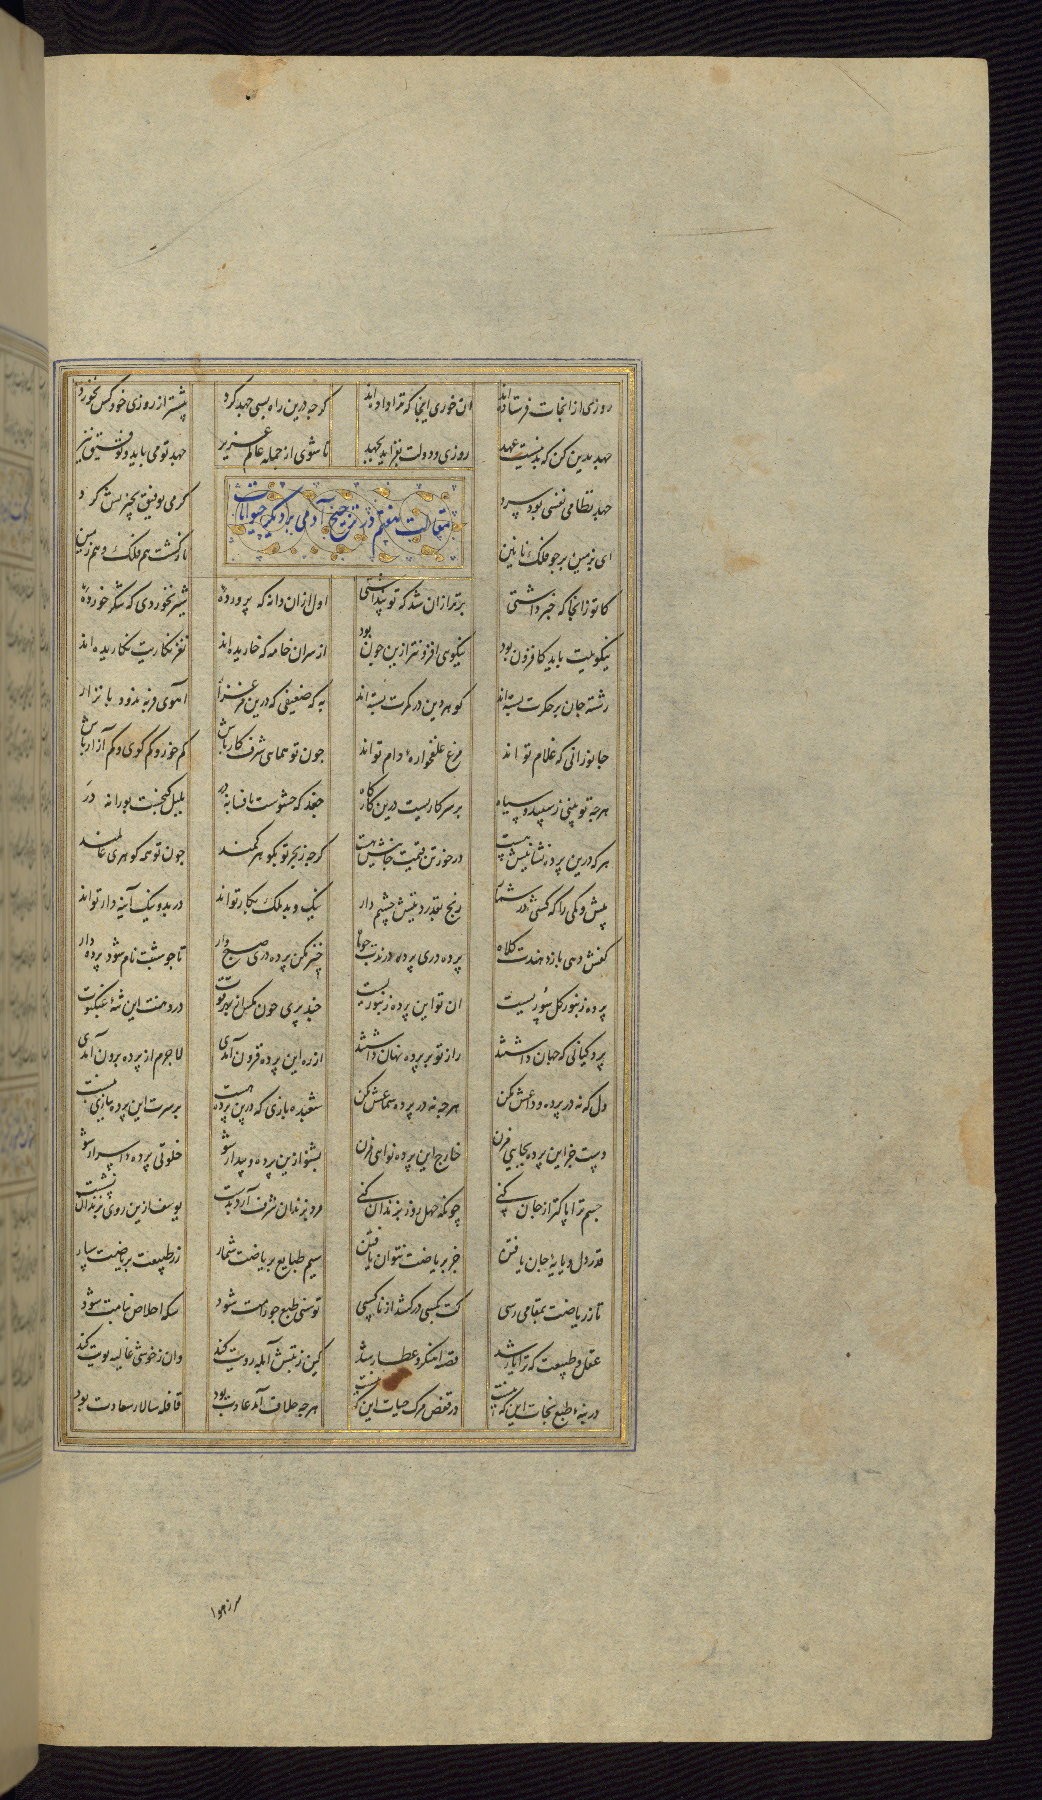 روزی از انجات فرستاده اند ان خوری اینجا که ترا داده اند کرجه درین راه بسی جهد کرد پیشتر از روزی خود کس نخورد
جهد بدین کن که بدینست عهد روزی و دولت نفزاید بجهد تا شوی از جمله عالم عزیز جهد تو می باید و توفیق نیز
جهد نظامی نفسی بود سرد کرمی توفیق بچیزیش کرد
مقالت هفتم در ترجیح آدمی بر دیکر حیوانات
ای بزمین بر جو فلک نازنین نازکشت هم فلک و هم زمین
کار تو زانجا که خبر داشتی برتر از ان شد که تو پنداشتی اول از ان دایه که پرورده شیر نخوردی که شکر خورده
نیکوئیت باید کافزون بود نیکوی افزونتر ازین جون بود از سر ان خامه که خاریده اند نغز نکاریت نکاریده اند
رشته جان بر جکرت بسته اند کوهر دین در کمرت بسته اند به که ضعیفی که درین مرغزار اهوی فربه ندود با نزار
جانورانی که غلام تو اند مرغ علفخواره دام تو اند جون تو همای شرف کار باش کم خور و کم کوی و کم آزار باش
هرجه تو بینی ز سپید و سیاه بر سر کاریست درین کارکاه جغد که شومست بافسانه در بلبل کنجست بویرانه در
هر که درین پرده نشانیش هست در خور تن قیمت جانیش هست کرجه ز بحر تو بکوهر کمند جون تو همه کوهری عالمند
پیش و کمی را که کشی در شمار رنج بقدر دیتش چشم دار نیک و بد ملک بکار تواند در بد و نیک آینه دار تواند
کفش دهی باز دهندت کلاه پرده دری پرده درندت جو ماه خیز مکن پرده دری صبح وار تا جو شبت نام شود پرده دار
پرده زنبور کل سوریست ان تو این پرده زنبوریست جند پری جون مکس از بهر قوت در دهن این تنه عنکبوت
پردکیانی که جهان داشتند راز تو بر پرده نهان داشتند از ره این پرده فزون آمدی لاجرم از پرده برون آمدی
دل که نه در پرده وداعش مکن هرجه نه در پرده سماعش مکن شعبده بازی که درین پرده هست بر سرت این پرده ببازی نبست
دست جز این پرده بجایی مزن خارج این پرده نوای مزن بشنو ازین پرده و بیدار شو خلوتی پرده اسرار شو
جسم ترا پاکتر از جان کنی چونکه چهل روز بزندان کنی مرد بزندان شرف آرد بدست یوسف ازین روی بزندان نشست
قدر دل و پایه جان یافتن جز بریاضت نتوان یافتن سیم طبایع بریاضت شمار زر طبیعت بریاضت سپار
تا ز ریاضت بمقامی رسی کت بکسی درکشد از ناکسی توسنی طبع جو رامت شود سکه اخلاص بنامت شود
عقل و طبیعت که ترا یار شد قصه آهنکر و عطار شد کین ز تبش آبله رویت کند وان ز خوشی غالیه بویت کند
در بنه طبع نجات اینکه نیست در قفص مرک حیات این که نیست هرجه خلاف آمد عادت بود قافله سالار سعادت بود